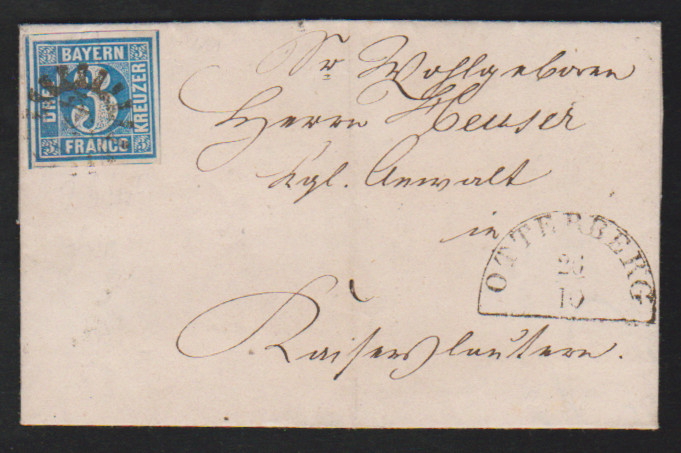 BAYERN
DREI
3
KREUZER
FRANCO
Sr Wohlgeboren
Herrn Heuser
Kgl. Anwalt
in
OTTERBERG
10
Kaiserslautern.